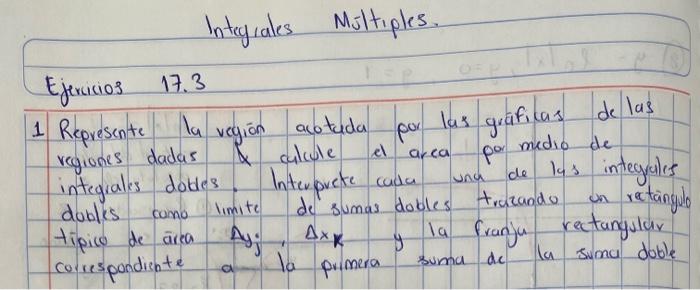 Integrales Múltiples.
Ejercicios 17.3
1 Represente la región acotada por las gráficas de las
regiones dadas & calcule el area por medio de
integrales dobles. Interprete cada una de las integrales
dobles como limite de sumas dobles trazando un rectángulo
típico de área Δyj, Δxk y la franja rectangular
correspondiente a la primera suma de la suma doble